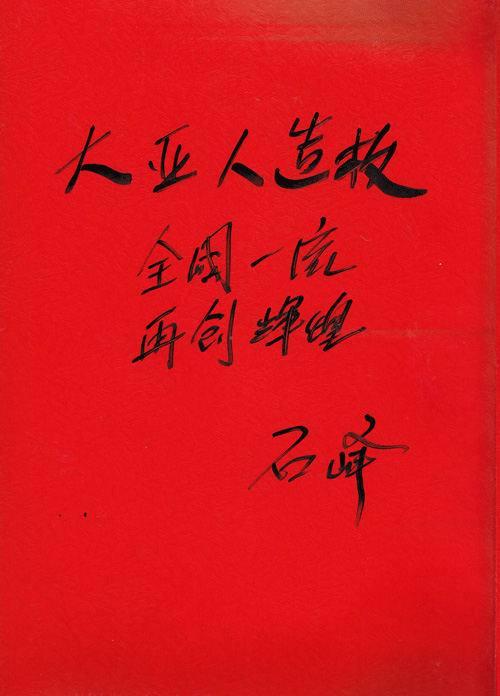 大亚人造板
全国一流
再创辉煌
石峰